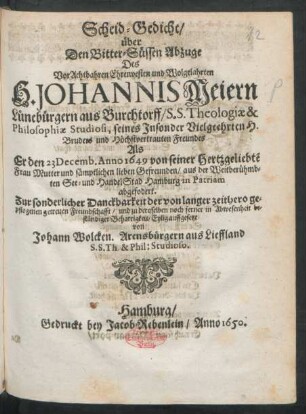 Scheid-Gedicht/
über
Den Bitter-Süssen Abzuge
Des
VorAchtbahren Ehrenvesten und Wolgelahrten
H. JOHANNIS Meiern
Lünebürgern aus Burchtorff/S.S. Theologiæ &
Philosophiæ Studiosi, seines Insonder Vielgeehrten H.
Bruders und Höchstvertrauten Freundes
Als
Er den 23 Decemb. Anno 1649 von seiner Hertzgeliebte
Frau Mutter und sämptlichen lieben Befreunden/ aus der Weitberühmb-
ten See-und Handel Stad Hamburg in Patriam
abgefodert.
Zur sonderlicher Danckbarkeit der von langer zeithero ge-
pflogenen getreuen Freundschafft/ und zu derselben noch ferner in Abwesenheit
von
Johann Wolcken, Arensbürgern aus Lieffland
S.S. Th. & Phil: Studioso.
Hamburg/
Gedruckt bey Jacob Rebenlein/ Anno 1650.